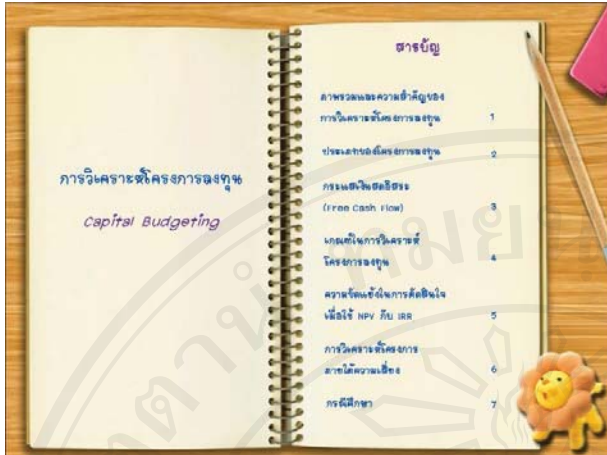 การวิเคราะห์โครงการลงทุน
Capital Budgeting
สารบัญ
ภาพรวมและความสำคัญของ
การวิเคราะห์โครงการลงทุน 1
ประเภทของโครงการลงทุน 2
กระแสเงินสดอิสระ
(Free Cash Flow) 3
เกณฑ์ในการวิเคราะห์
โครงการลงทุน 4
ความขัดแย้งในการตัดสินใจ
เมื่อใช้ NPV กับ IRR 5
การวิเคราะห์โครงการ
ภายใต้ความเสี่ยง 6
กรณีศึกษา 7